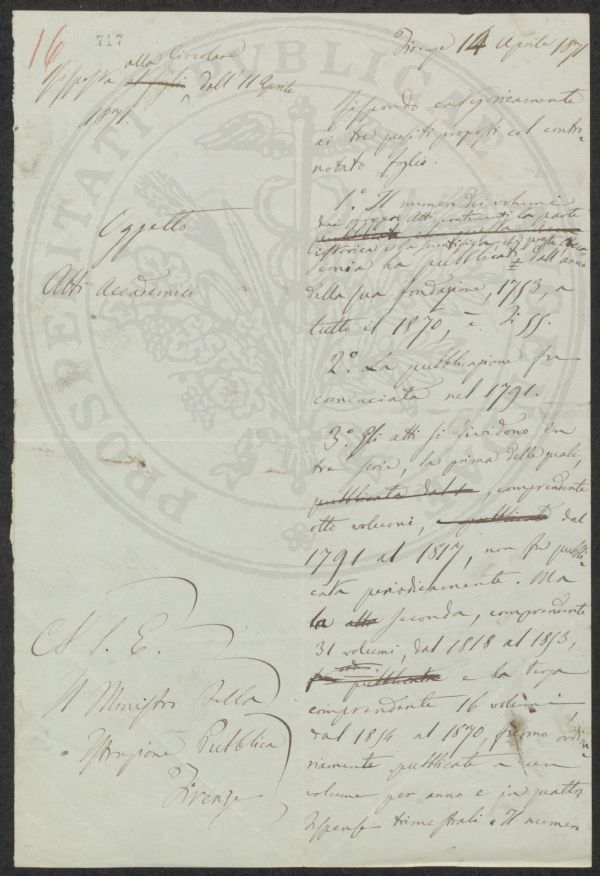 16
717
Firenze 14 Aprile 1871
alla Circolare
Risposta al foglio dell'11 Aprile
1871.
Oggetto
Atti Accademici
Rispondo categoricamente
ai tre quesiti proposti col contro
nodato foglio.
1.º Il numero dei volumi
dei proprj Atti contenenti la parte
istorica e la scientifica, che questa Acca
demia ha pubblicati dall'anno
della sua fondazione, 1753, a
tutto il 1870, è di 55.
2.º La pubblicazione fu
cominciata nel 1791.
3.º Gli atti si dividono in
tre serie, la prima delle quali,
pubblicata dal 1, comprendente
otto volumi, pubblicata dal
1791 al 1817, non fu pubbli
cata periodicamente. Ma
la altra seconda, comprendente
31 volumi, dal 1818 al 1853,
fu pubblicata e la terza
comprendente 16 volumi
dal 1854 al 1870, furono ordi
riamente pubblicate a un
volume per anno e in quattro
dispense trimestrali. Il numero
A S. E.
Il Ministro della
Istruzione Pubblica
Firenze
PROSPERITATI PUBLICAE